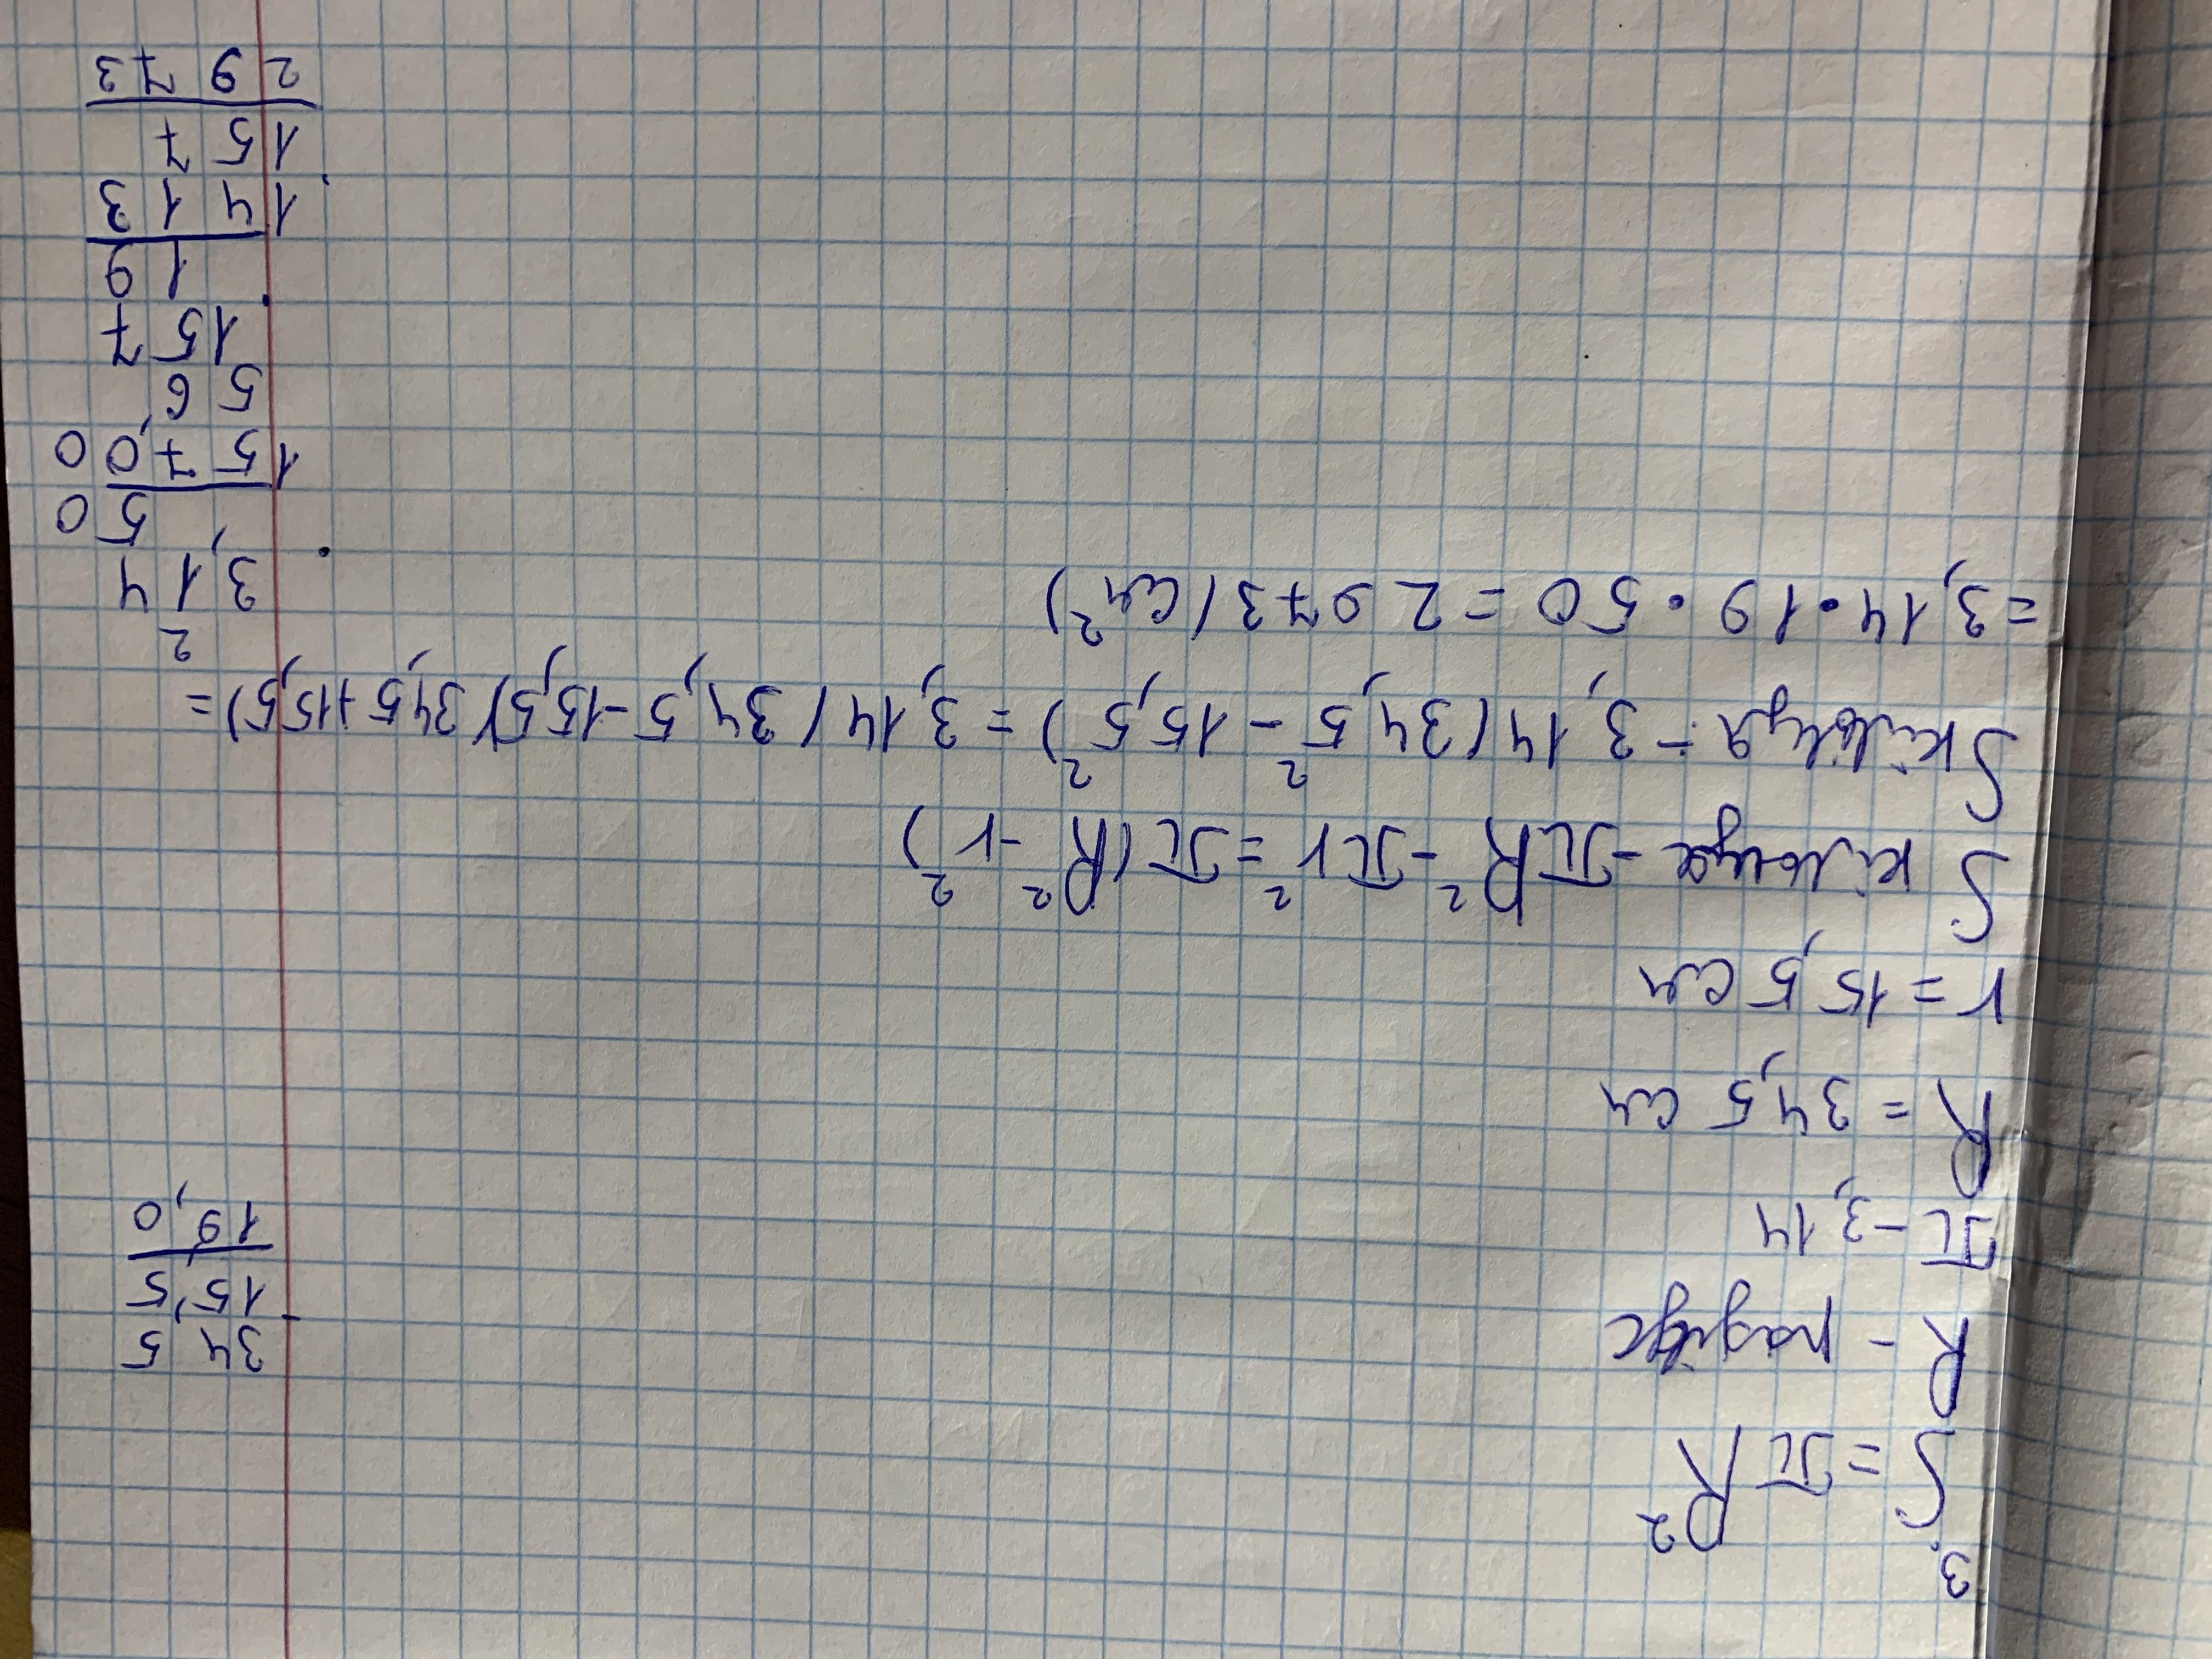 3.
S = πR²
R - радіус
π - 3,14
R = 34,5 см
r = 15,5 см
S кільця - πR² - πr² = π(R² - r²)
S кільця - 3,14(34,5² - 15,5²) = 3,14(34,5-15,5)(34,5+15,5) =
= 3,14 • 19 • 50 = 2 973 (см²)
34 5
- 15,5
19,0
2
3,14
50
157,00
56,
157
19
1413
157
2973